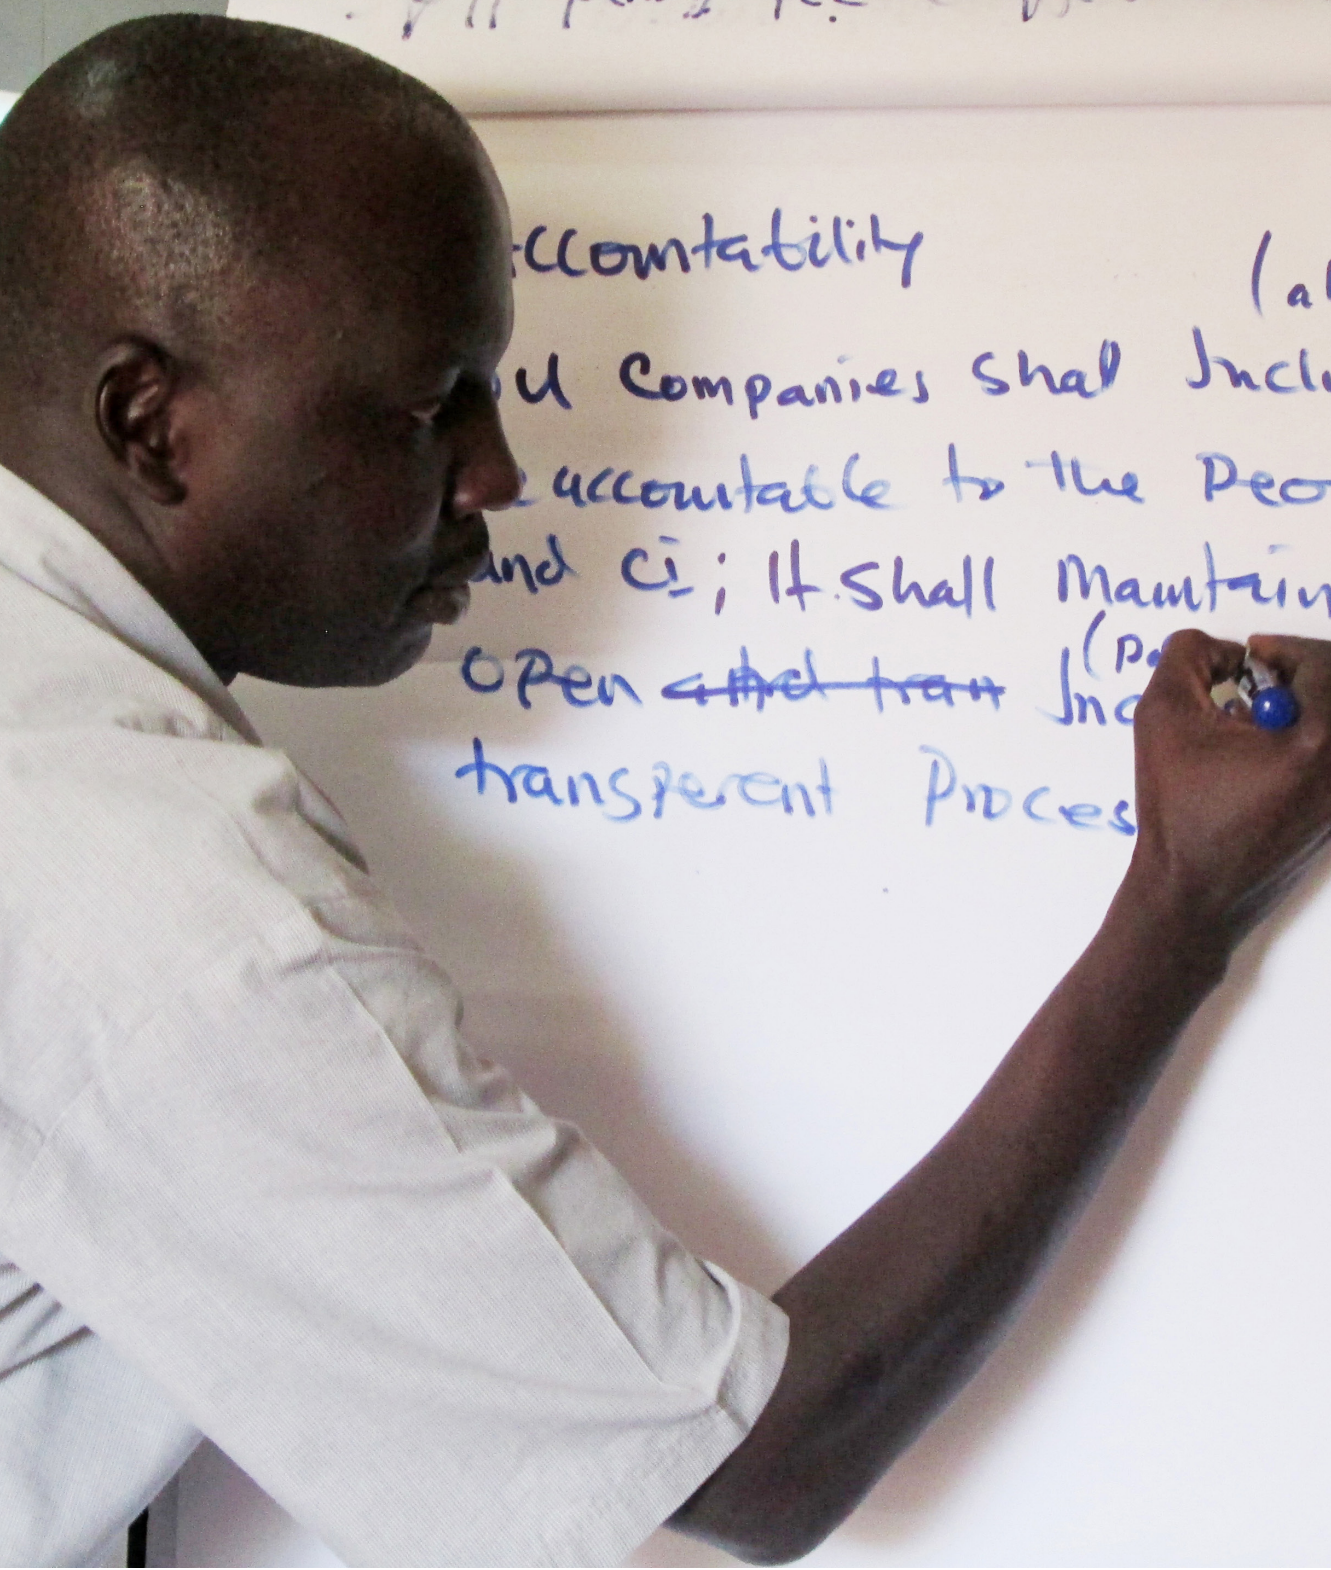 ccountability (al
Companies shal Inclu
accountable to the Peo
and Ci; It shall Maintain
(Pa
Open and tran Inc
transperent Proces